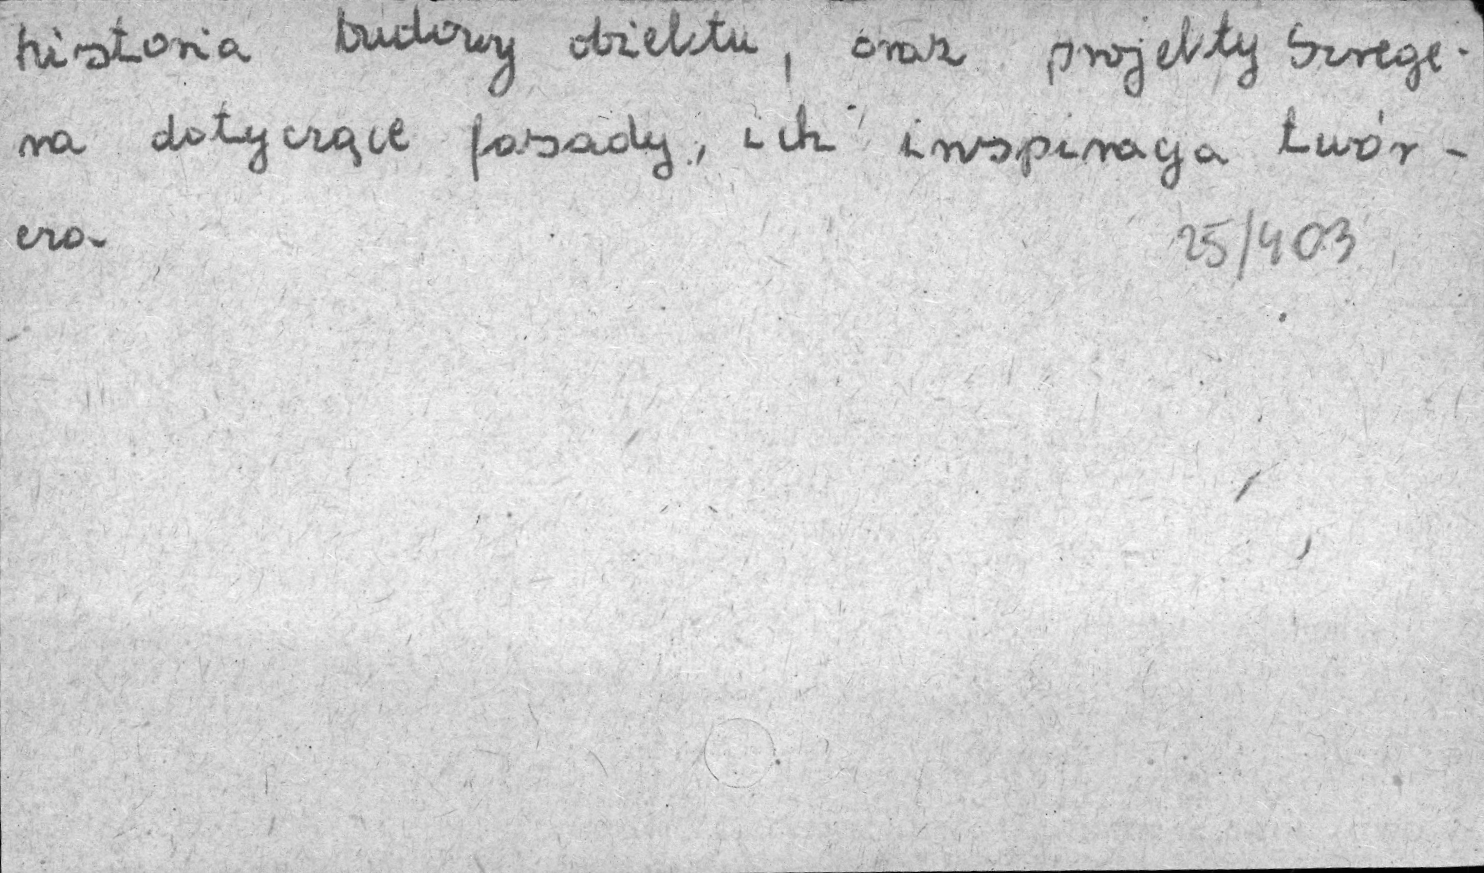 historia budowy obiektu, oraz projekty Szrege-
ra dotyczące fasady, ich inspiracja twór-
cza
25/403